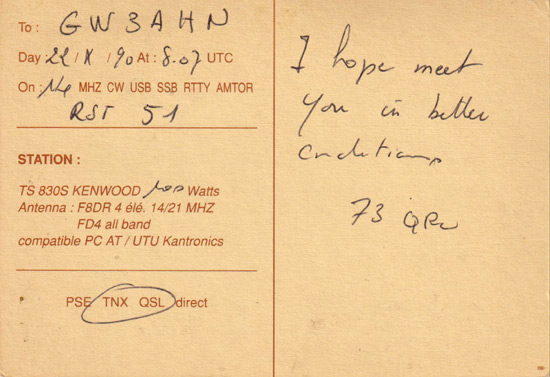 To : GW3AHN
Day 22 / X / 90 At : 8.07 UTC
On : 14 MHZ CW USB SSB RTTY AMTOR
RST 51
STATION :
TS 830S KENWOOD 100 Watts
Antenna : F8DR 4 élé. 14/21 MHZ
FD4 all band
compatible PC AT / UTU Kantronics
PSE TNX QSL direct
I hope meet
you in better
conditions
73